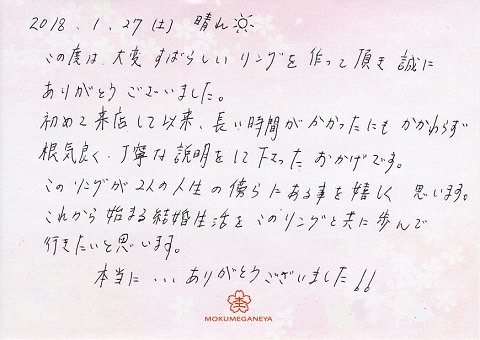 2018.1.27(土) 晴れ☼
この度は、大変すばらしいリングを作って頂き誠に
ありがとうございました。
初めて来店して以来、長い時間がかかったにもかかわらず
根気良く、丁寧な説明をして下さったおかげです。
このリングが2人の人生の傍らにある事を嬉しく思います。
これから始まる結婚生活をこのリングと共に歩んで
行きたいと思います。
本当に...ありがとうございました!!
MOKUMEGANEYA